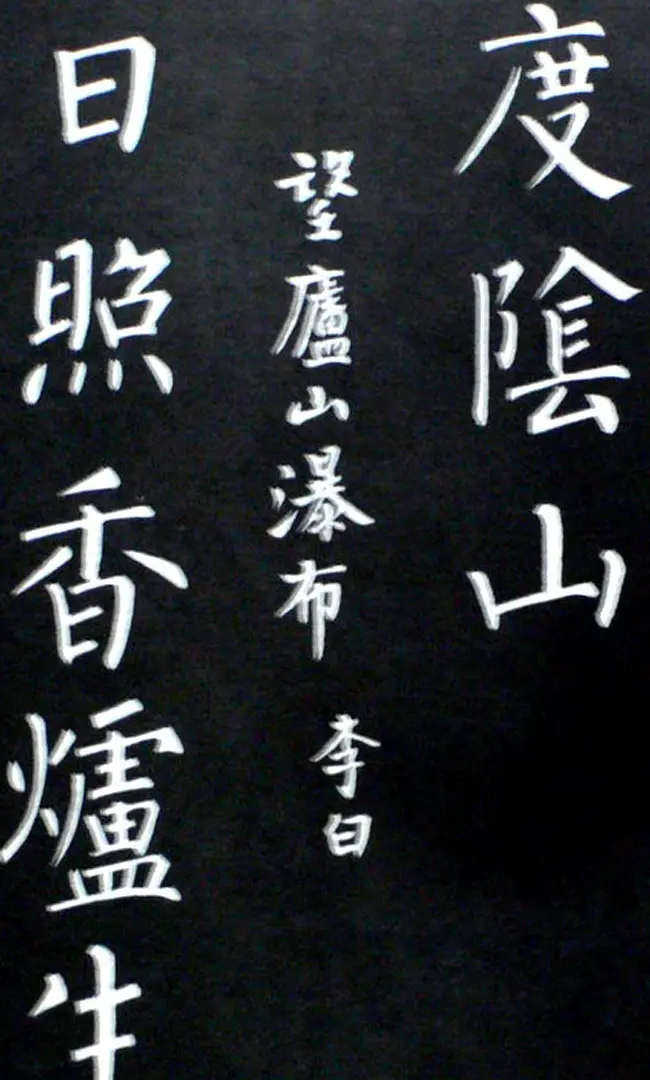 度陰山
望廬山瀑布 李白
日照香爐生